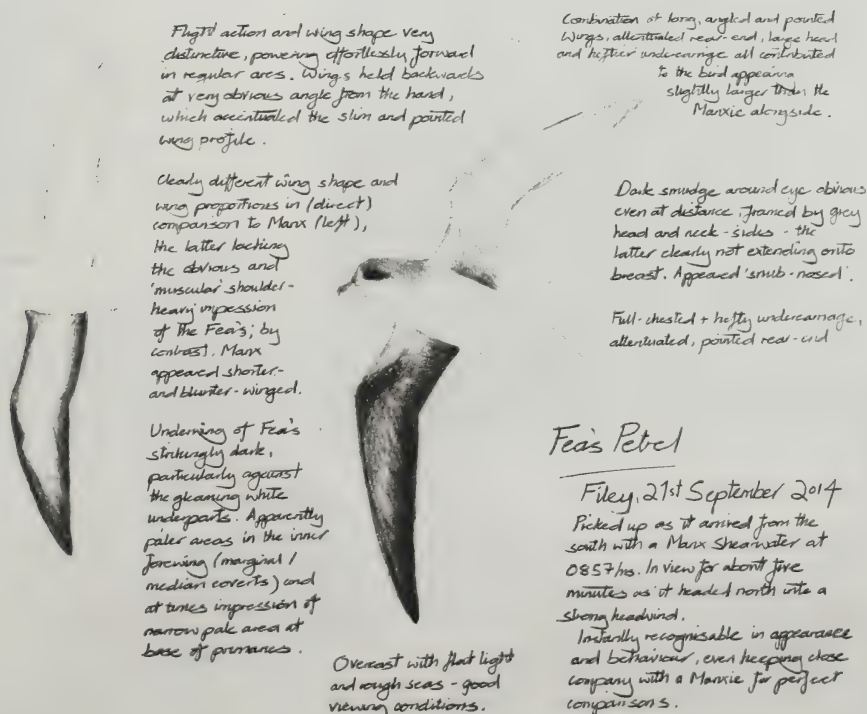 Flight action and wing shape very
distinctive, powering effortlessly forward
in regular arcs. Wings held backwards
at very obvious angle from the hand,
which accentuated the slim and pointed
wing profile.
Clearly different wing shape and
wing proportions in (direct)
comparison to Manx (left),
the latter lacking
the obvious and
'muscular' shoulder-
heavy impression
of the Fea's; by
contrast, Manx
appeared shorter-
and blunter-winged.
Underwing of Fea's
strikingly dark,
particularly against
the gleaming white
underparts. Apparently
paler areas in the inner
forewing (marginal /
median coverts) and
at times impression of
narrow pale area at
base of primaries.
Overcast with flat light
and rough seas - good
viewing conditions.
Combination of long, angled and pointed
wings, attentuated rear-end, large head
and heftier undercarriage all contributed
to the bird appearing
slightly larger than the
Manxie alongside.
Dark smudge around eye obvious
even at distance, framed by grey
head and neck-sides - the
latter clearly not extending onto
breast. Appeared 'snub-nosed'.
Full-chested + hefty undercarriage,
attentuated, pointed rear-end
Fea's Petrel
Filey, 21st September 2014
Picked up as it arrived from the
south with a Manx Shearwater at
0857hrs. In view for about five
minutes as it headed north into a
strong headwind.
Instantly recognisable in appearance
and behaviour, even keeping close
company with a Manxie for perfect
comparisons.